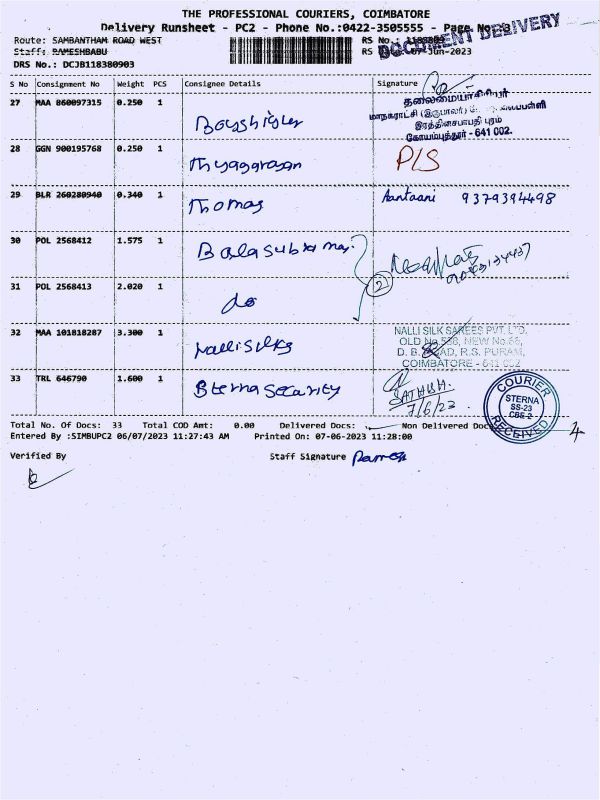 THE PROFESSIONAL COURIERS, COIMBATORE
Delivery Runsheet - PC2 - Phone No.:0422-3505555 - Page No. 3
DOCUMENT DELIVERY
Route: SAMBANTHAM ROAD WEST RS No.: 1183809
Staff: RAMESHBABU RS 07-Jun-2023
DRS No.: DCJB118380903
S No Consignment No Weight PCS Consignee Details Signature
27 MAA 860097315 0.250 1
தலைமையாசிரியர்
மாநகராட்சி
இரத்தினசபாபதி புரம்
கோயம்புத்தூர் - 641 002.
28 GGN 900195768 0.250 1 Thyagarajan PLS
29 BLR 260280940 0.340 1 Thomas Aantaani 9379394498
30 POL 2568412 1.575 1
31 POL 2568413 2.020 1 do 2
32 MAA 101818287 3.300 1 Nalli silks
NALLI SILK SAREES PVT. LTD.
OLD No. 538, NEW No.
D. B. ROAD, R.S. PURAM,
COIMBATORE - 641 002
33 TRL 646790 1.600 1 Sterna Security
7/6/23
COURIER
STERNA
SS-23
CBE-2
RECEIVED
Total No. Of Docs: 33 Total COD Amt: 0.00 Delivered Docs: Non Delivered Doc 4
Entered By :SIMBUPC2 06/07/2023 11:27:43 AM Printed On: 07-06-2023 11:28:00
Verified By Staff Signature